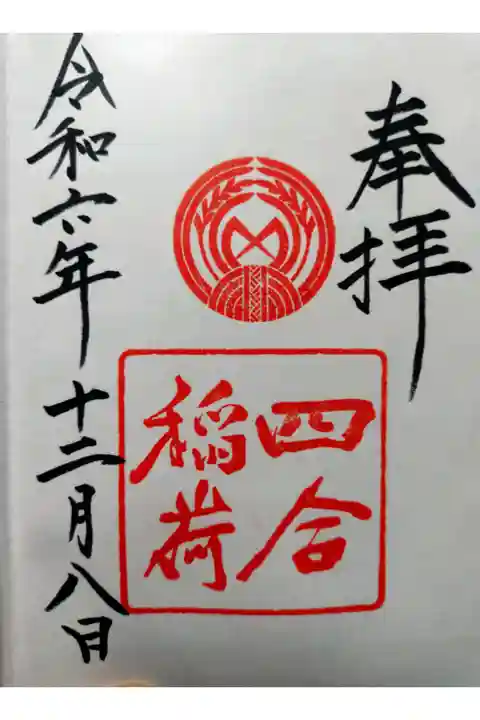 奉拝
四合
稲荷
令和六年十二月八日